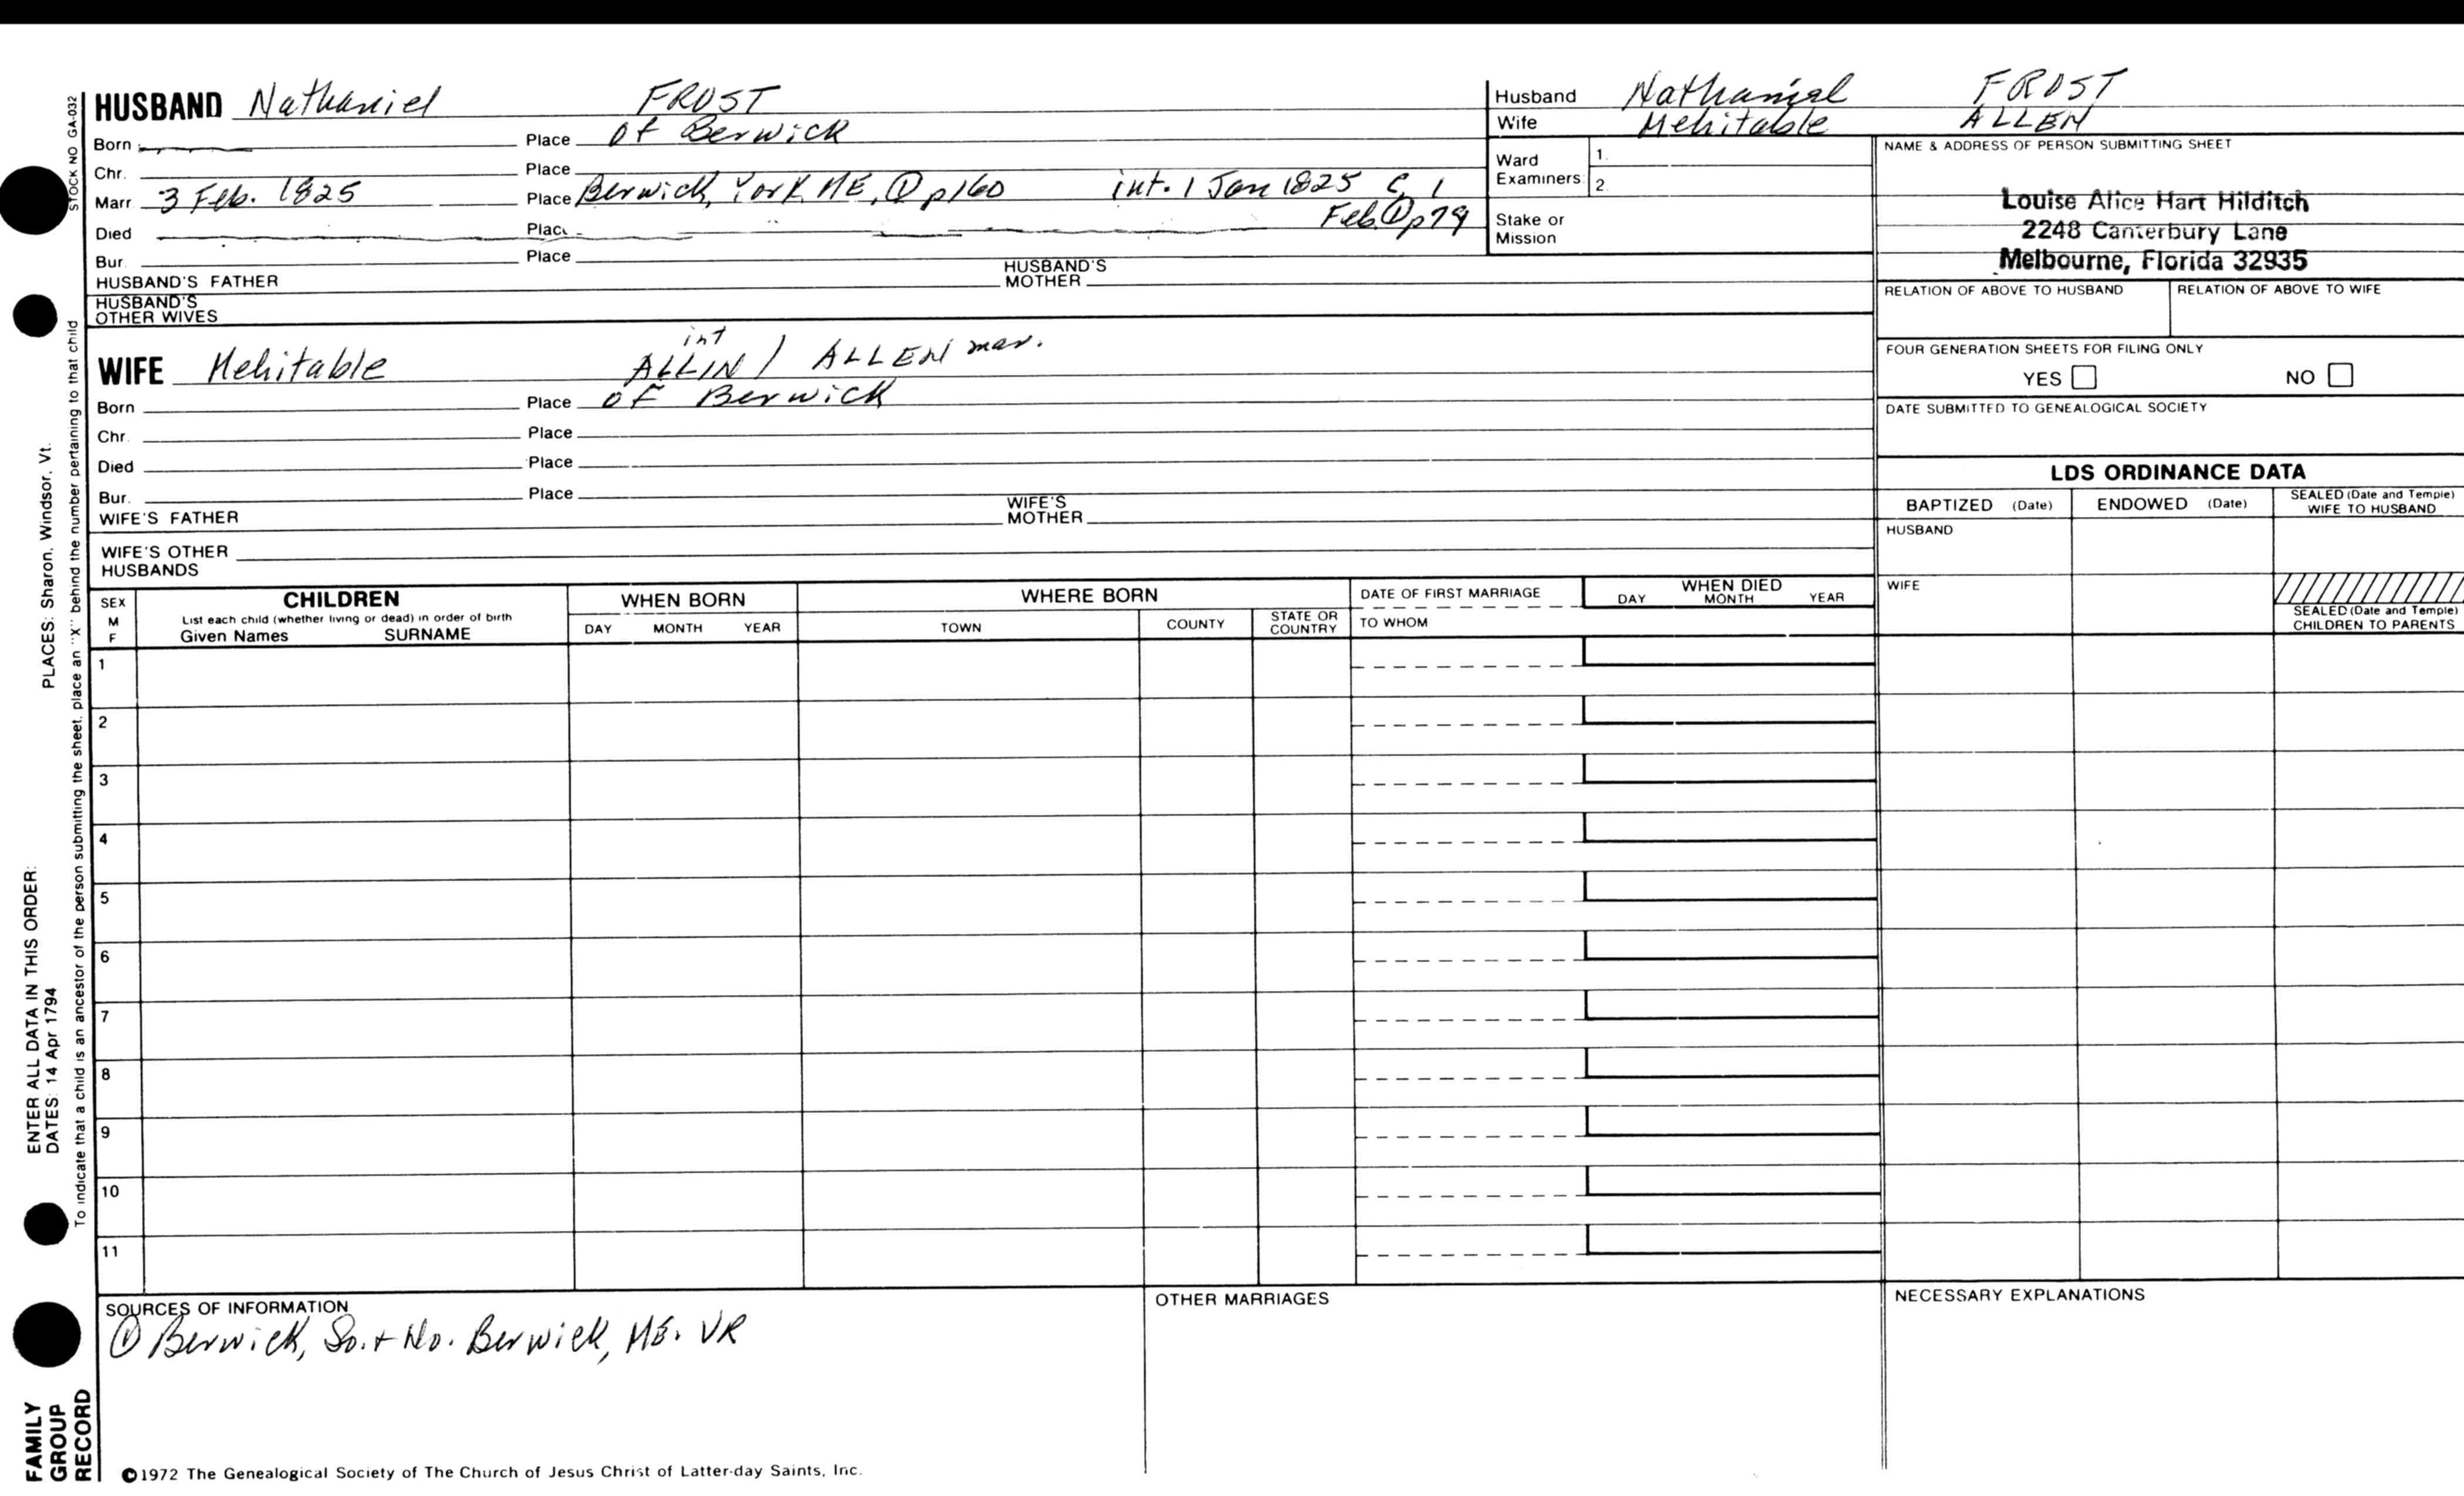 HUSBAND Nathaniel FROST
Born Place of Berwick
Chr. Place
Marr 3 Feb. 1825 Place Berwick, York, ME, ① p160 int. 1 Jan 1825 C. 1
Died Place Feb ① p79
Bur. Place
HUSBAND'S FATHER HUSBAND'S MOTHER
HUSBAND'S OTHER WIVES
int
WIFE Mehitable ALLIN / ALLEN mar.
Born Place of Berwick
Chr. Place
Died Place
Bur. Place
WIFE'S FATHER WIFE'S MOTHER
WIFE'S OTHER HUSBANDS
Husband Nathaniel FROST
Wife Mehitable ALLEN
Ward Examiners 1.
2.
Stake or Mission
NAME & ADDRESS OF PERSON SUBMITTING SHEET
Louise Alice Hart Hilditch
2248 Canterbury Lane
Melbourne, Florida 32935
RELATION OF ABOVE TO HUSBAND RELATION OF ABOVE TO WIFE
FOUR GENERATION SHEETS FOR FILING ONLY
YES NO
DATE SUBMITTED TO GENEALOGICAL SOCIETY
LDS ORDINANCE DATA
BAPTIZED (Date) ENDOWED (Date) SEALED (Date and Temple) WIFE TO HUSBAND
HUSBAND
WIFE
SEALED (Date and Temple) CHILDREN TO PARENTS
SEX M F
CHILDREN
List each child (whether living or dead) in order of birth
Given Names SURNAME
WHEN BORN
DAY MONTH YEAR
WHERE BORN
TOWN COUNTY STATE OR COUNTRY
DATE OF FIRST MARRIAGE
TO WHOM
WHEN DIED
DAY MONTH YEAR
1
2
3
4
5
6
7
8
9
10
11
SOURCES OF INFORMATION
① Berwick, So. + No. Berwick, ME. VR
OTHER MARRIAGES
NECESSARY EXPLANATIONS
©1972 The Genealogical Society of The Church of Jesus Christ of Latter-day Saints, Inc.
STOCK NO GA-032
To indicate that a child is an ancestor of the person submitting the sheet, place an "X" behind the number pertaining to that child
ENTER ALL DATA IN THIS ORDER:
DATES: 14 Apr 1794 PLACES: Sharon, Windsor, Vt.
FAMILY
GROUP
RECORD